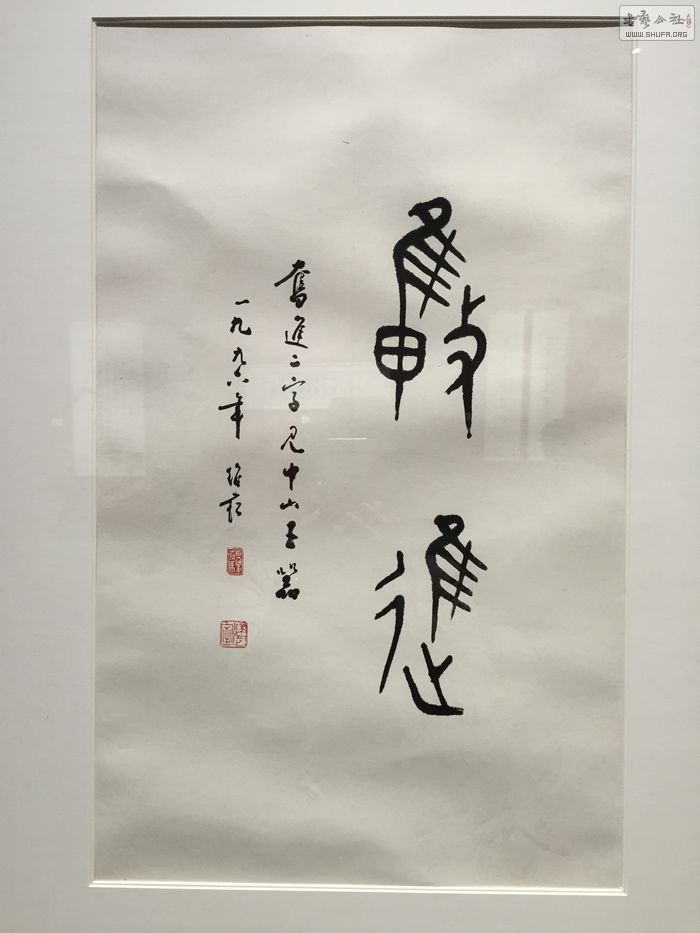 奮進
奮進二字見中山王器
一九九六年
書藝公社
WWW.SHUFA.ORG